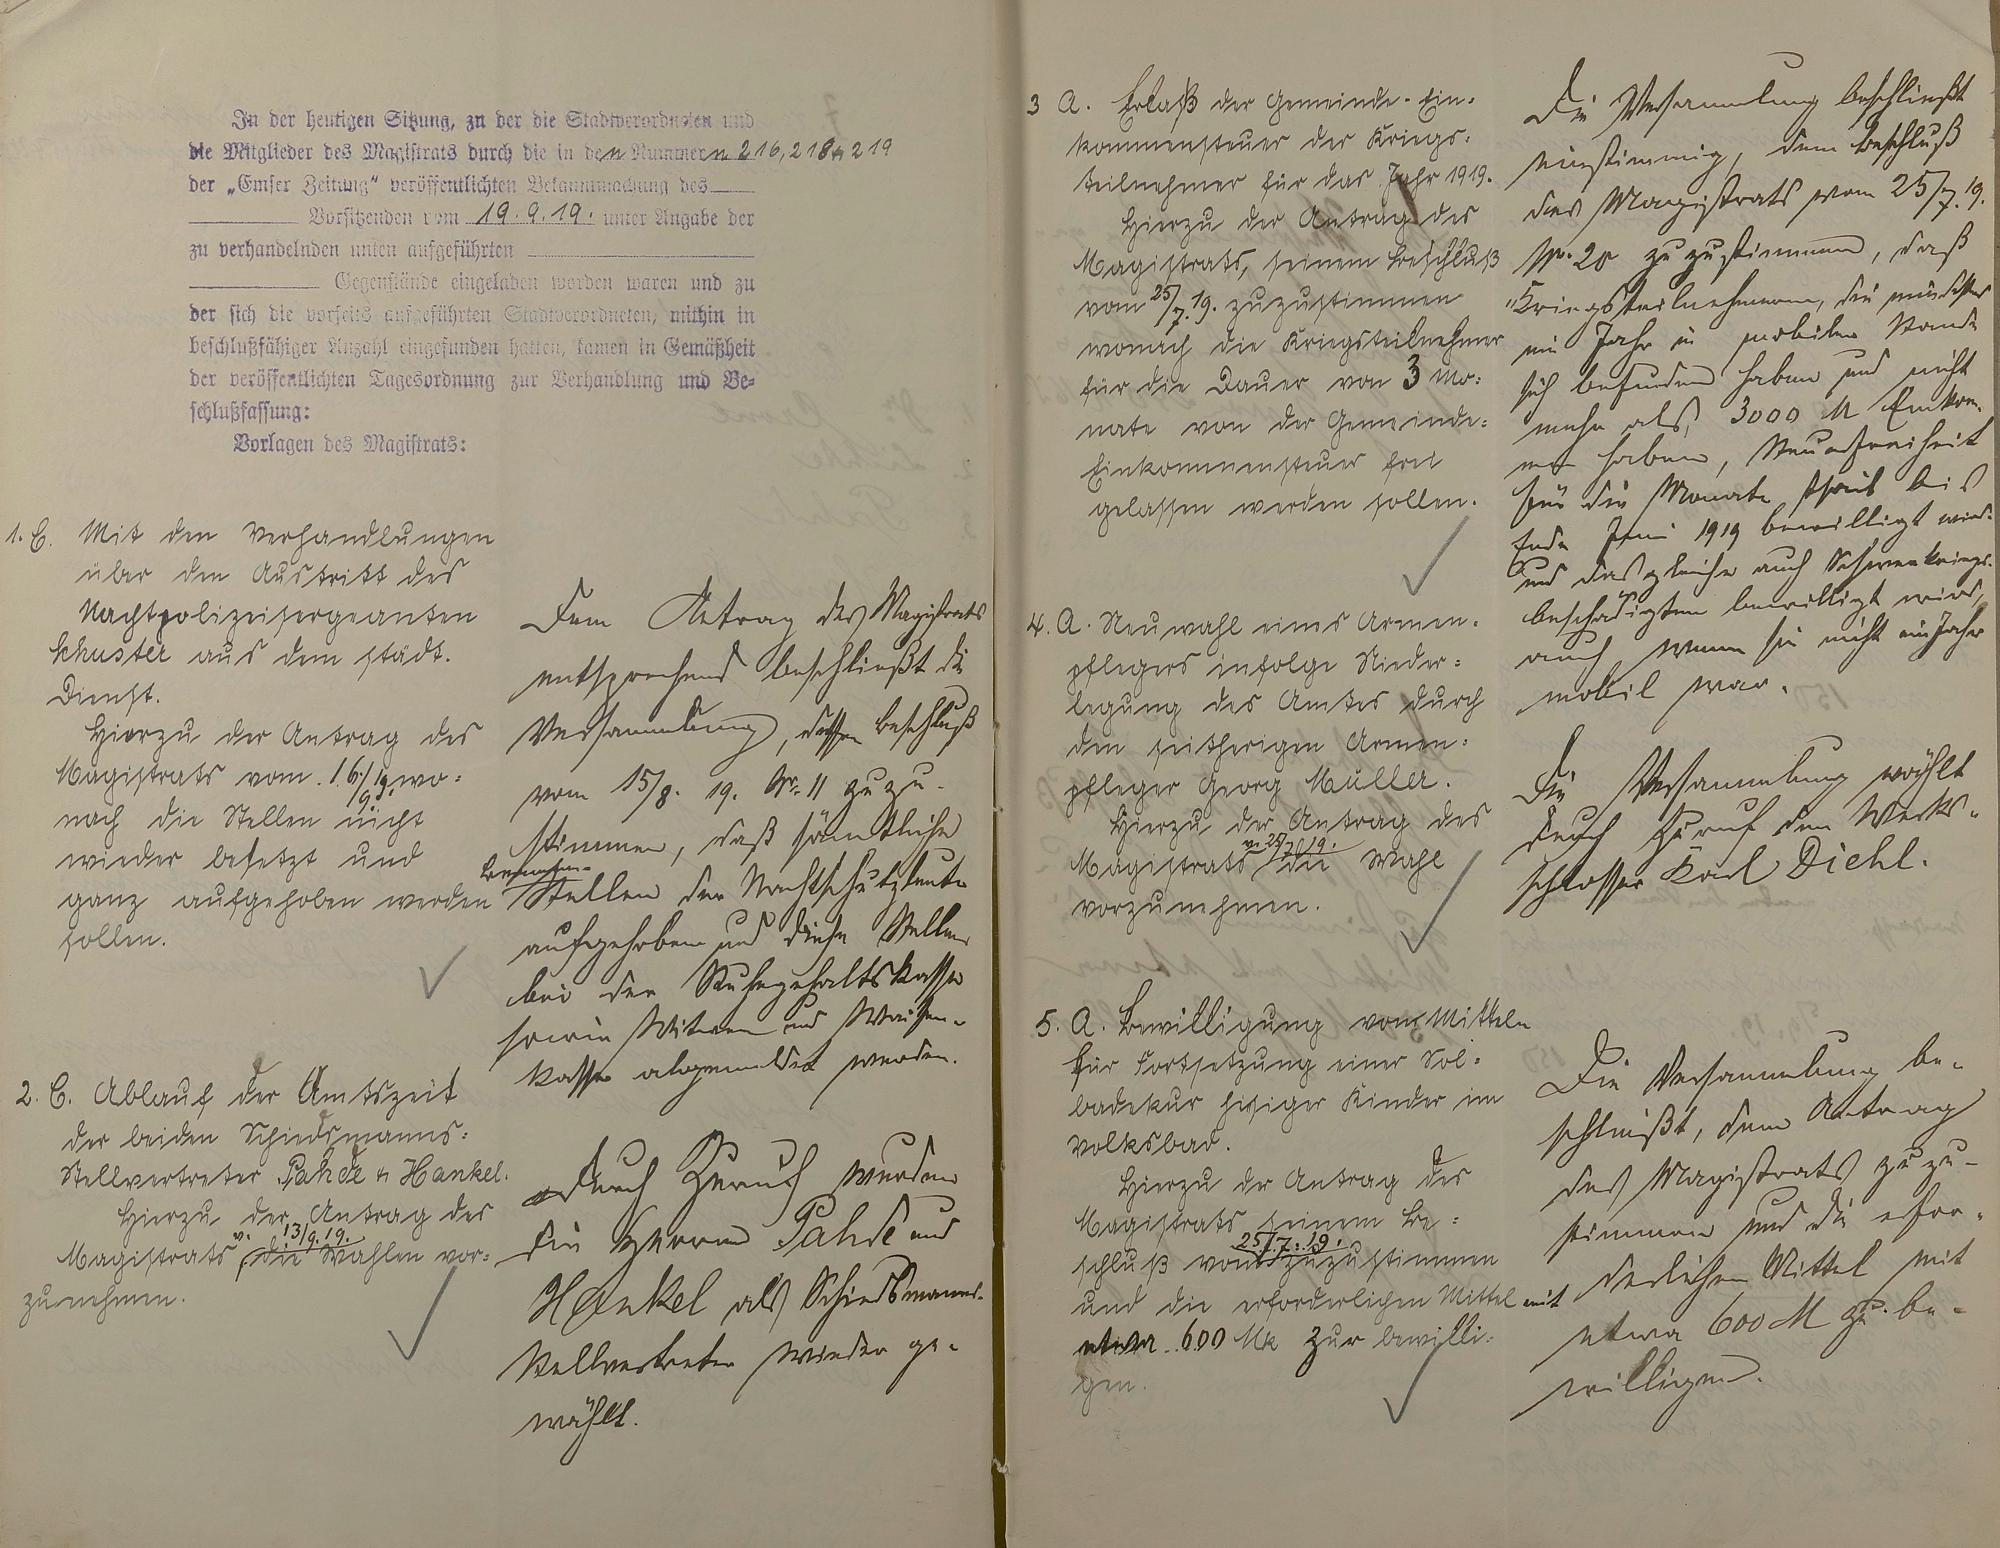 In der heutigen Sitzung, zu der die Stadtverordneten und
die Mitglieder des Magistrats durch die in den Nummern 216, 218 u 219
der „Emser Zeitung" veröffentlichten Bekanntmachung des
Vorsitzenden vom 19.9.19. unter Angabe der
zu verhandelnden unten aufgeführten
Gegenstände eingeladen worden waren und zu
der sich die vorseits aufgeführten Stadtverordneten, mithin in
beschlußfähiger Anzahl eingefunden hatten, kamen in Gemäßheit
der veröffentlichten Tagesordnung zur Verhandlung und Be-
schlußfassung:
Vorlagen des Magistrats:
1. C. Mit den Verhandlungen
über den Austritt des
Nachtpolizeisergeanten
Schuster aus dem städt.
Dienst.
Hierzu der Antrag des
Magistrats vom wo-
nach die Stellen nicht
wieder besetzt und
ganz aufgehoben werden
sollen.
Dem Antrag des Magistrats
entsprechend beschließt die
Versammlung, dessen Beschluß
vom 15/8. 19. Nr. 11 zuzu-
stimmen, daß sämtliche
Stellen der Nachtschutzleute
aufgehoben und diese Stellen
bei der Ruhegehaltskasse
sowie Witwen und Waisen-
kasse abgemeldet werden.
2. C. Ablauf der Amtszeit
der beiden Schiedsmanns-
Stellvertreter Pahde u Hankel.
Hierzu der Antrag des
Magistrats v. 13/9. 19. die Wahlen vor-
zunehmen.
Durch Zuruf wurden
die Herren Pahde und
Hankel als Schiedsmanns-
stellvertreter wieder ge-
wählt.
3 A. Erlaß der Gemeinde-Ein-
kommensteuer der Kriegs-
teilnehmer für das Jahr 1919.
Hierzu der Antrag des
Magistrats, seinem Beschluß
vom 25/7. 19. zuzustimmen
wonach die Kriegsteilnehmer
für die Dauer von 3 Mo-
nate von der Gemeinde-
Einkommensteuer frei
gelassen werden sollen.
Die Versammlung beschließt
einstimmig, dem Beschluß
des Magistrats vom 25/7. 19.
Nr. 20 zuzustimmen, daß
"Kriegsteilnehmern, die mindestens
ein Jahr in mobilem Stande
sich befunden haben und nicht
mehr als 3000 M Einkom-
men haben, Steuerfreiheit
für die Monate April bis
Ende Juni 1919 bewilligt wird
und das gleiche auch Schwerkriegs-
beschädigten bewilligt wird,
auch wenn sie nicht ein Jahr
mobil war.
4. A. Neuwahl eines Armen-
pflegers infolge Nieder-
legung des Amtes durch
den seitherigen Armen-
pfleger Georg Müller.
Hierzu der Antrag des
Magistrats v. 25/7. 19. die Wahl
vorzunehmen.
Die Versammlung wählt
durch Zuruf den Werks-
schlosser Karl Diehl.
5. A. Bewilligung von Mitteln
für Fortsetzung einer Sol-
badekur hisiger Kinder im
Volksbad.
Hierzu der Antrag des
Magistrats seinem Be-
schluß vom 25/7. 19. zuzustimmen
und die erforderlichen Mittel mit
etwa 600 Mk zur bewilli-
gen.
Die Versammlung be-
schließt, dem Antrag
des Magistrats zuzu-
stimmen und die erfor-
derlichen Mittel mit
etwa 600 M zu be-
willigen.